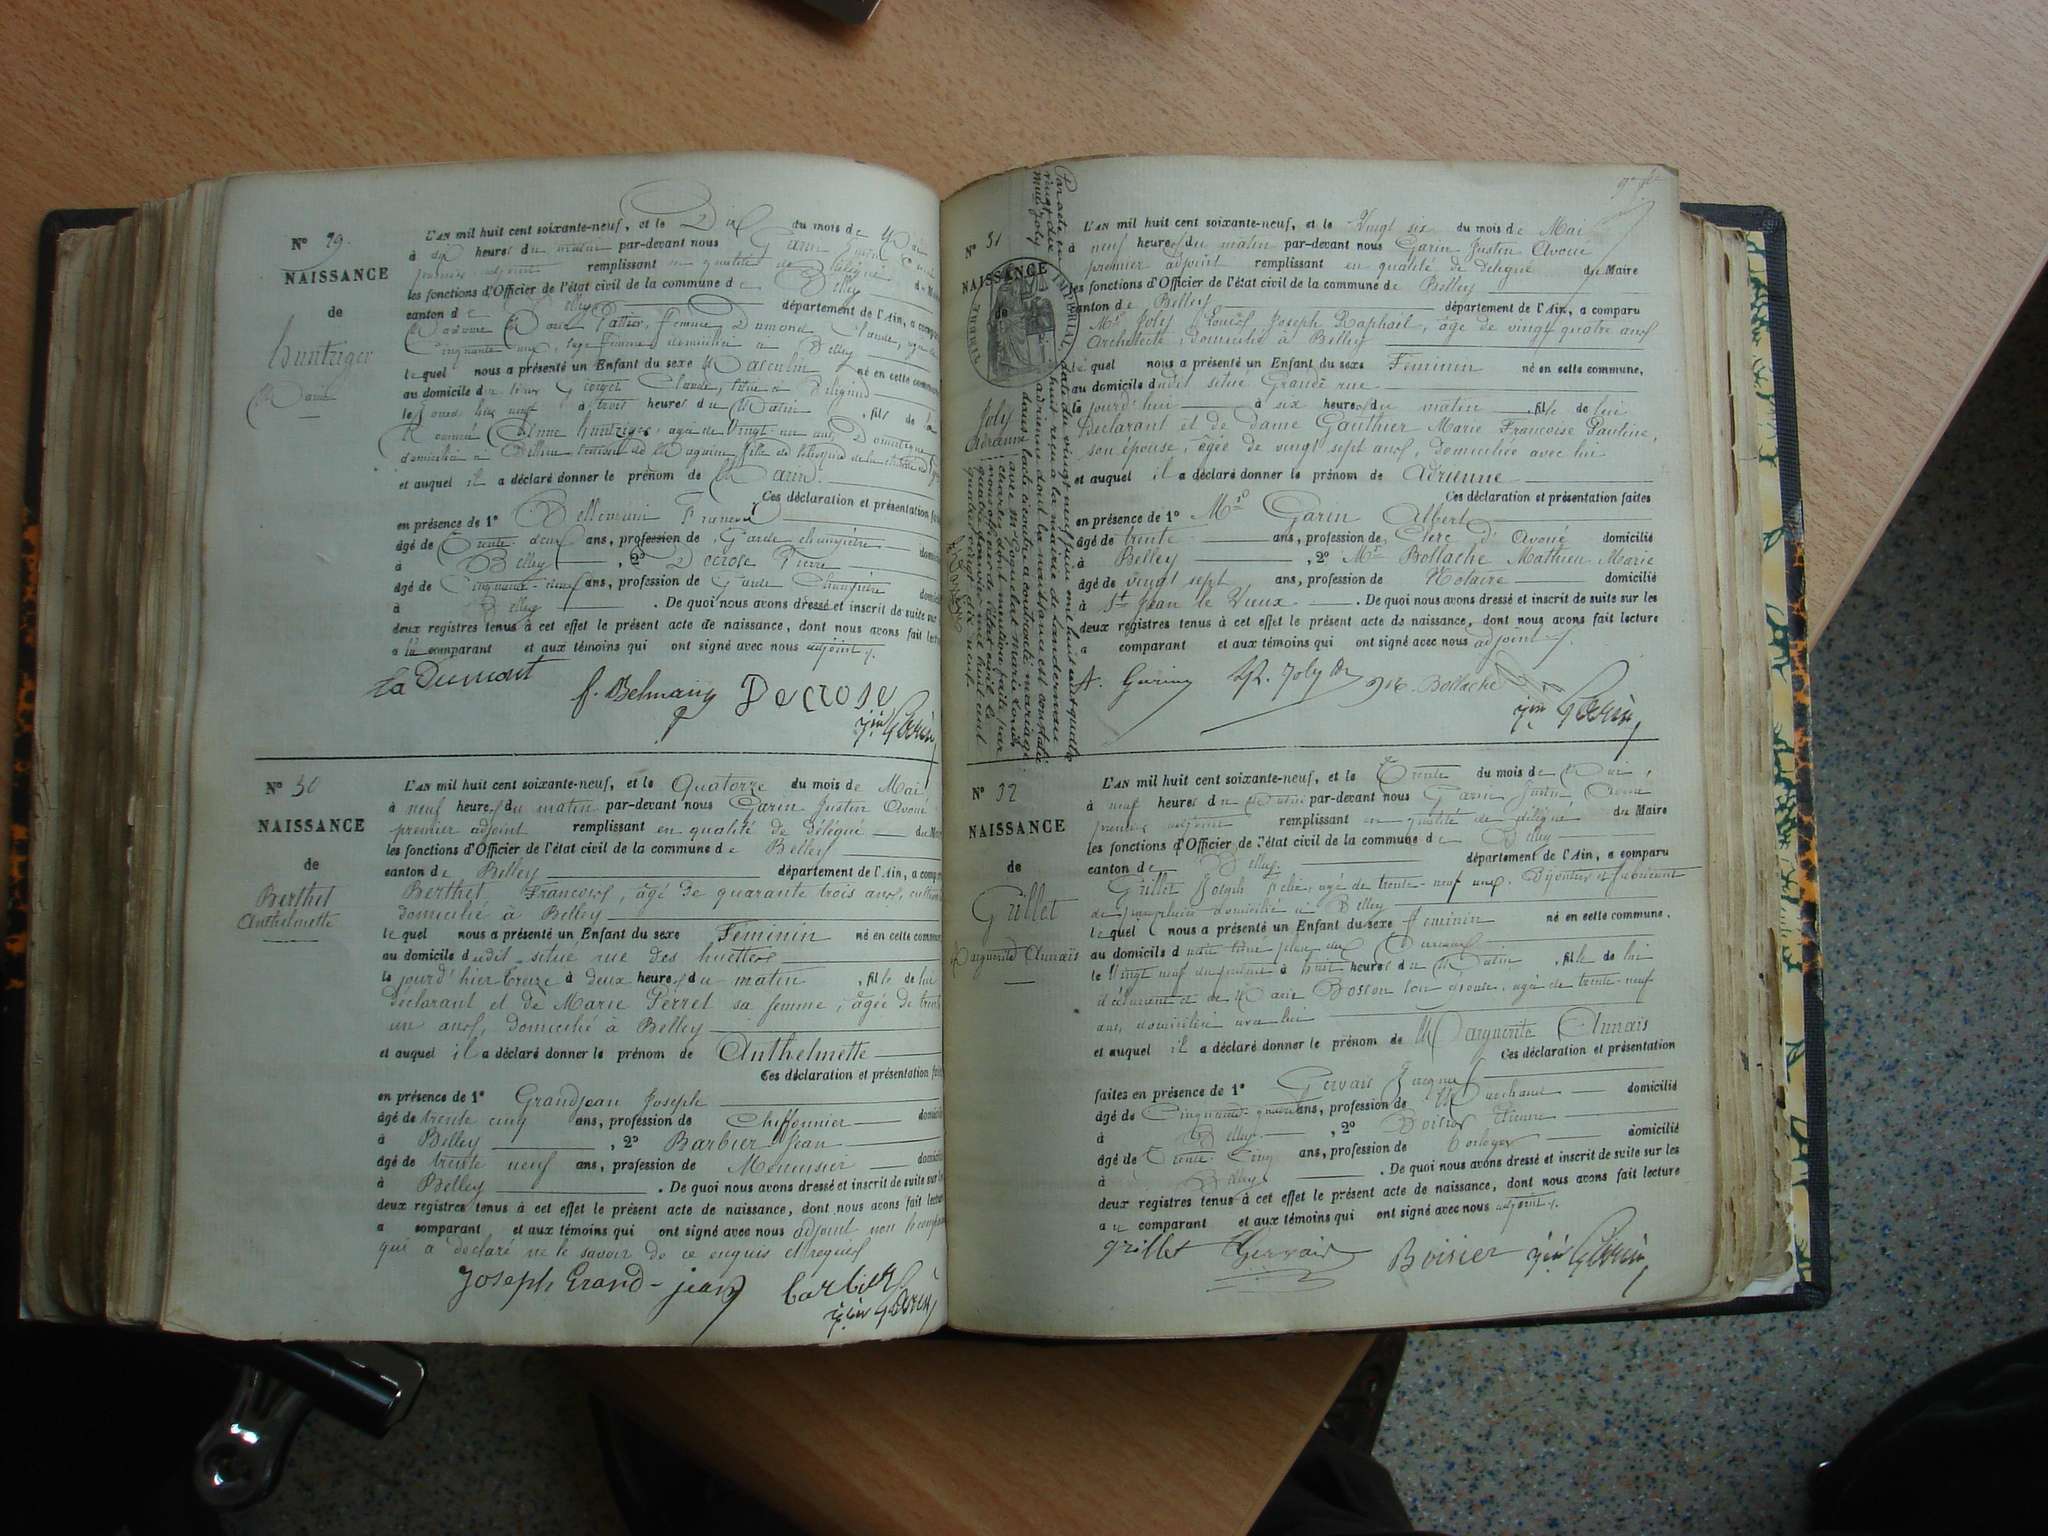 N° 29.
NAISSANCE
de
huntziger
L'AN mil huit cent soixante-neuf, et le Dix du mois de Mai
à dix heures du matin par-devant nous Garin Justin Avoué
premier adjoint remplissant en qualité de Délégué du Maire
les fonctions d'Officier de l'état civil de la commune de Belley
canton de Belley département de l'Ain, a comparu
femme Dumont
Cinquante deux, sage femme domiciliée à Belley
lequel nous a présenté un Enfant du sexe Masculin né en cette commune,
au domicile du sieur Claude, situé
le jourd'hui neuf à trois heures du Matin, fils de
huntziger, agée de Vingt un ans, Domestique
domiciliée à
et auquel il a déclaré donner le prénom de
Ces déclaration et présentation faites
en présence de 1° Bellemain François
âgé de Trente deux ans, profession de Garde champêtre domicilié
à Belley, 2° Decrose Pierre
âgé de Cinquante deux ans, profession de Garde Champêtre domicilié
à Belley. De quoi nous avons dressé et inscrit de suite sur les
deux registres tenus à cet effet le présent acte de naissance, dont nous avons fait lecture
a la comparant et aux témoins qui ont signé avec nous adjoint
fa Dumont
f. Belmain Decrose
Jin Garin
N° 30
NAISSANCE
de
Berthet
Anthelmette
L'AN mil huit cent soixante-neuf, et le Quatorze du mois de Mai
à neuf heures du matin par-devant nous Garin Justin Avoué
premier adjoint remplissant en qualité de Délégué du Maire
les fonctions d'Officier de l'état civil de la commune de Belley
canton de Belley département de l'Ain, a comparu
Berthet François, âgé de quarante trois ans,
domicilié à Belley
lequel nous a présenté un Enfant du sexe Feminin né en cette commune,
au domicile dudit situé rue des huetters
le jourd'hier treize à deux heures du matin, fille de lui
déclarant et de Marie Perret sa femme, âgée de trente
un ans, domiciliée à Belley
et auquel il a déclaré donner le prénom de Anthelmette
Ces déclaration et présentation faites
en présence de 1° Grandjean Joseph
âgé de trente cinq ans, profession de Chiffonnier domicilié
à Belley, 2° Barbier Jean
âgé de trente neuf ans, profession de Menuisier domicilié
à Belley. De quoi nous avons dressé et inscrit de suite sur les
deux registres tenus à cet effet le présent acte de naissance, dont nous avons fait lecture
a comparant et aux témoins qui ont signé avec nous adjoint non le comparant
qui a déclaré ne le savoir de ce enquis et requis
Joseph Grand-jean barbier
Jin Garin
N° 31
NAISSANCE
de
Joly
Adrienne
TIMBRE IMPERIAL
Par acte en date du vingt neuf juin mil huit cent quatre
vingt dix huit reçu à la mairie de Landerneau
Mlle Joly Adrienne dont la naissance est constatée
dans l'acte ci-contre a contracté mariage
avec M.
dont mention faite par
nous
janvier mil huit cent
quatre vingt dix neuf.
L'AN mil huit cent soixante-neuf, et le Vingt six du mois de Mai
à neuf heures du matin par-devant nous Garin Justin Avoué
premier adjoint remplissant en qualité de délégué du Maire
les fonctions d'Officier de l'état civil de la commune de Belley
canton de Belley département de l'Ain, a comparu
Mr Joly Louis Joseph Raphaël, âgé de vingt quatre ans
Architecte, domicilié à Belley
lequel nous a présenté un Enfant du sexe Feminin né en cette commune,
au domicile dudit situé Grande rue
le jourd'hui à six heures du matin, fille de lui
Déclarant et de dame Gauthier Marie Françoise Pauline,
son épouse, âgée de vingt sept ans, domiciliée avec lui
et auquel il a déclaré donner le prénom de Adrienne
Ces déclaration et présentation faites
en présence de 1° Mr Garin Albert
âgé de trente ans, profession de Clerc d'Avoué domicilié
à Belley, 2° Mr Bollache Mathieu Marie
âgé de vingt sept ans, profession de Notaire domicilié
à St Jean le Vieux. De quoi nous avons dressé et inscrit de suite sur les
deux registres tenus à cet effet le présent acte de naissance, dont nous avons fait lecture
a comparant et aux témoins qui ont signé avec nous adjoint
A. Garin R. Joly M. Bollache
Jin Garin
N° 32
NAISSANCE
de
Grillet
Marguerite Annaïs
L'AN mil huit cent soixante-neuf, et le Trente du mois de Mai,
à neuf heures du Matin par-devant nous Garin Justin Avoué
premier adjoint remplissant en qualité de délégué du Maire
les fonctions d'Officier de l'état civil de la commune de Belley
canton de Belley département de l'Ain, a comparu
Grillet Joseph Félix, agé de trente-neuf ans, Bijoutier et fabricant
de parapluies domicilié à Belley
lequel nous a présenté un Enfant du sexe feminin né en cette commune.
au domicile dudit situé place des Terreaux
le Vingt neuf du même à huit heures du Matin, fille de lui
déclarant et de Marie Bosson son épouse, agée de trente-neuf
ans, domiciliée avec lui
et auquel il a déclaré donner le prénom de Marguerite Annaïs
Ces déclaration et présentation
faites en présence de 1° Gervais Jacques
âgé de Cinquante quatre ans, profession de Marchand domicilié
à Belley, 2° Boisier Etienne
âgé de Trente Cinq ans, profession de horloger domicilié
à Belley. De quoi nous avons dressé et inscrit de suite sur les
deux registres tenus à cet effet le présent acte de naissance, dont nous avons fait lecture
au comparant et aux témoins qui ont signé avec nous adjoint
grillet Gervais Boisier Jin Garin